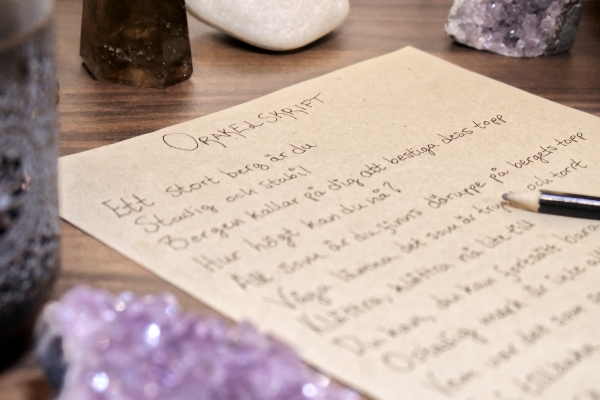 ORAKELSKRIFT
Ett stort berg är du
Stadig och stabil
Bergen kallar på dig att bestiga dess topp
Hur högt kan du nå?
Allt som är du finns däruppe på bergets topp
Våga lämna det som är tryggt och torrt
Klättra, klättra nå lite till
Du kan, du kan fortsätt bara
Ostadig mark är inte all
Vem var det som sa
tillbaka